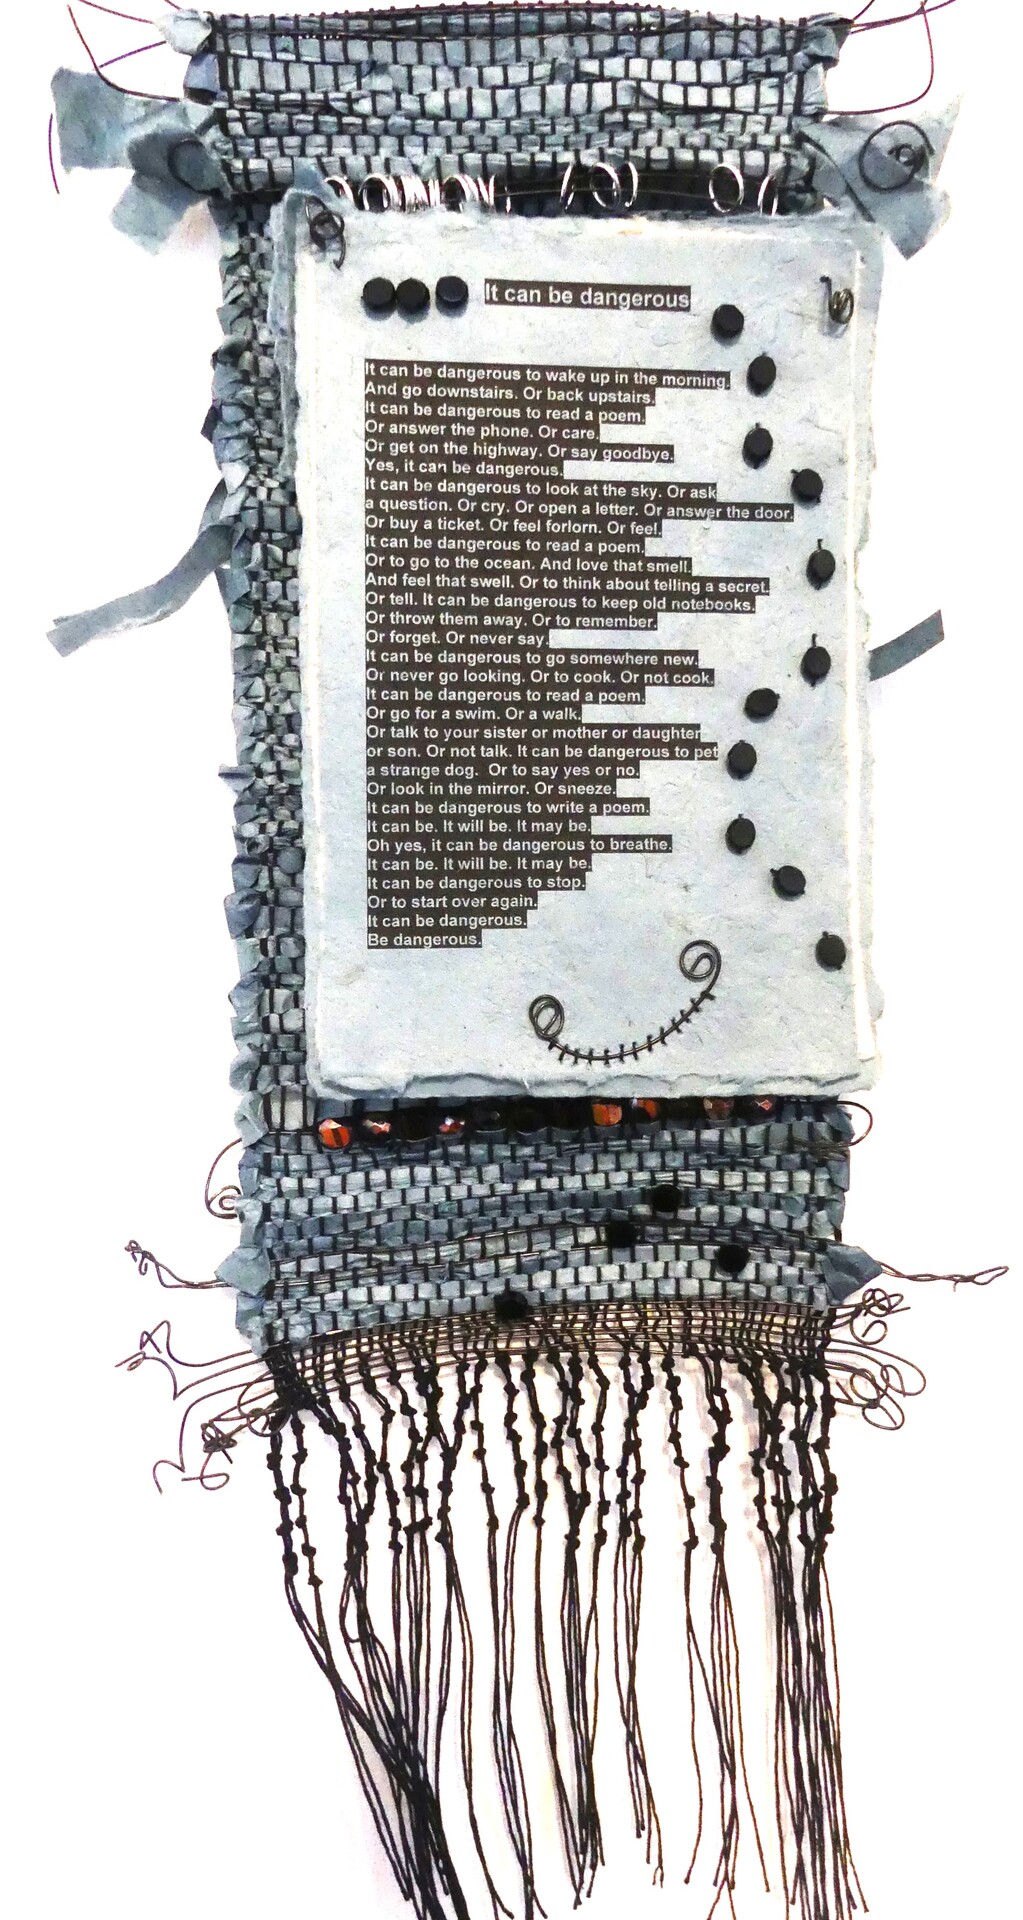 It can be dangerous
It can be dangerous to wake up in the morning.
And go downstairs. Or back upstairs.
It can be dangerous to read a poem.
Or answer the phone. Or care.
Or get on the highway. Or say goodbye.
Yes, it can be dangerous.
It can be dangerous to look at the sky. Or ask
a question. Or cry. Or open a letter. Or answer the door.
Or buy a ticket. Or feel forlorn. Or feel.
It can be dangerous to read a poem.
Or to go to the ocean. And love that smell.
And feel that swell. Or to think about telling a secret.
Or tell. It can be dangerous to keep old notebooks.
Or throw them away. Or to remember.
Or forget. Or never say.
It can be dangerous to go somewhere new.
Or never go looking. Or to cook. Or not cook.
It can be dangerous to read a poem.
Or go for a swim. Or a walk.
Or talk to your sister or mother or daughter
or son. Or not talk. It can be dangerous to pet
a strange dog.  Or to say yes or no.
Or look in the mirror. Or sneeze.
It can be dangerous to write a poem.
It can be. It will be. It may be.
Oh yes, it can be dangerous to breathe.
It can be. It will be. It may be.
It can be dangerous to stop.
Or to start over again.
It can be dangerous.
Be dangerous.